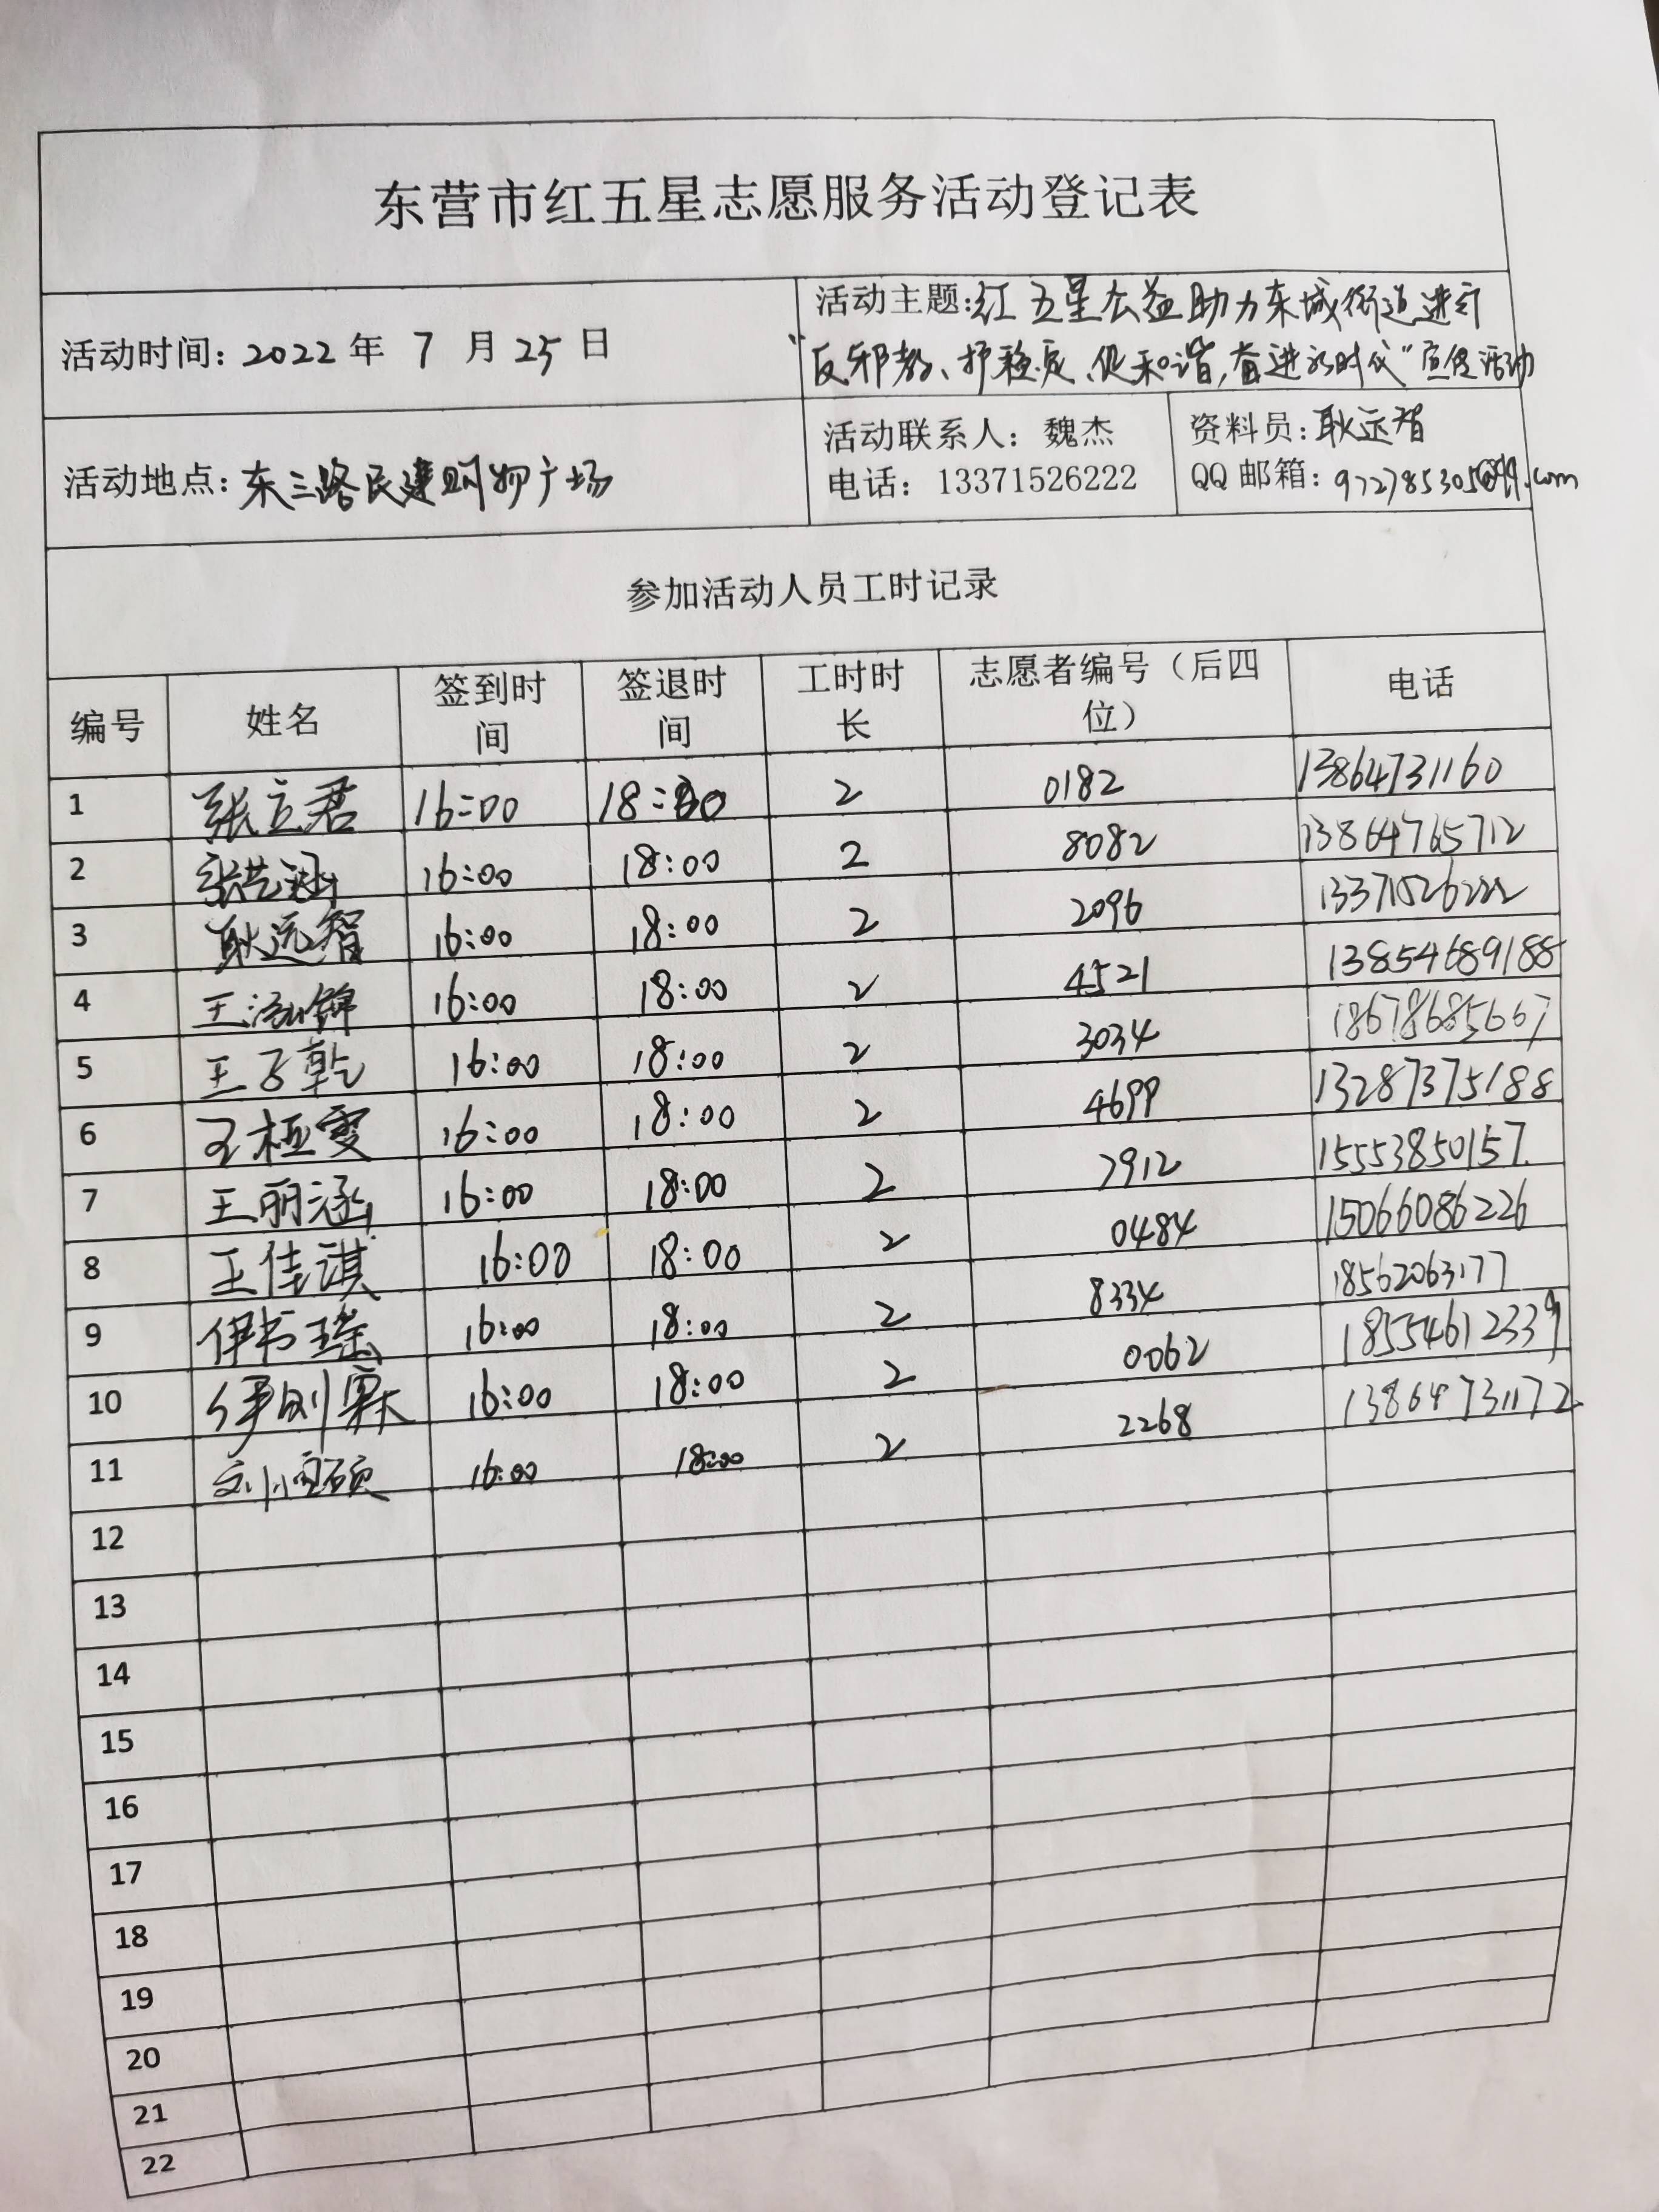 东营市红五星志愿服务活动登记表
活动时间：2022年 7 月 25 日
活动主题：红五星公益助力东城街道进行
“反邪教、护稳定、促和谐，奋进新时代”宣传活动
活动地点：东三路民建购物广场
活动联系人：魏杰
电话：13371526222
资料员：耿远智
QQ 邮箱：972785305@qq.com
参加活动人员工时记录
编号 姓名 签到时间 签退时间 工时时长 志愿者编号（后四位） 电话
1 张立君 16:00 18:00 2 0182 13864731160
2 张艺涵 16:00 18:00 2 8082 13864765712
3 耿远智 16:00 18:00 2 2096 13371526222
4 王泓锦 16:00 18:00 2 4521 13854689188
5 王子乾 16:00 18:00 2 3034 18678685667
6 王桓雯 16:00 18:00 2 4699 13287375188
7 王丽涵 16:00 18:00 2 7912 15553850157
8 王佳淇 16:00 18:00 2 0484 15066086226
9 伊书瑶 16:00 18:00 2 8334 18562063177
10 伊刘 16:00 18:00 2 0062 18554612339
11 刘 硕 16:00 18:00 2 2268 13864731172
12
13
14
15
16
17
18
19
20
21
22